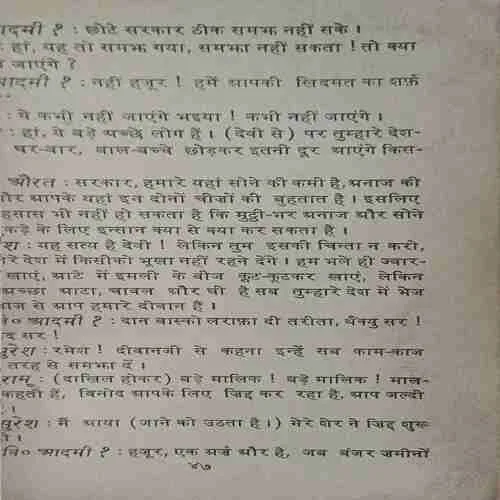 ादमी १ : छोटे सरकार ठीक समझ नहीं सके ।
: हां, यह तो समझ गया, समझा नहीं सकता ! तो क्या
जाएंगे ?
ादमी १ : नहीं हजूर ! हमें आपकी ख़िदमत का शर्फ़
: ये कभी नहीं जाएंगे भइया ! कभी नहीं जाएंगे ।
: हां, ये बड़े अच्छे लोग हैं । (देवी से) पर तुम्हारे देश-
घर-बार, बाल-बच्चे छोड़कर इतनी दूर आएंगे किस-
औरत : सरकार, हमारे यहां सोने की कमी है, अनाज की
और आपके यहां इन दोनों चीज़ों की बहुतात है । इसलिए
हसास भी नहीं हो सकता है कि मुट्ठी-भर अनाज और सोने
कड़े के लिए इन्सान क्या से क्या कर सकता है ।
श : यह सत्य है देवी ! लेकिन तुम इसकी चिन्ता न करो,
रे देश में किसीको भूखा नहीं रहने देंगे । हम भले ही ज्वार-
खाएं, आटे में इमली के बीज कूट-कूटकर खाएं, लेकिन
च्छा आटा, चावल और घी है सब तुम्हारे देश में भेज
ाज से आप हमारे दीवान हैं ।
वि० आदमी १ : दान बास्को लराफ़ा दी तरीता, थैंक्यु सर !
सर !
रेश : रमेश ! दीवानजी से कहना इन्हें सब काम-काज
तरह से समझा दें ।
रामू : (दाखिल होकर) बड़े मालिक ! बड़े मालिक ! माल-
कहती हैं, विनोद आपके लिए ज़िद्द कर रहा है, आप जल्दी
।
रेश : मैं आया (जाने को उठता है ।) मेरे शेर ने ज़िद्द शुरू
।
वि० आदमी १ : हजूर, एक अर्ज़ और है, जब बंजर ज़मीनों
४७